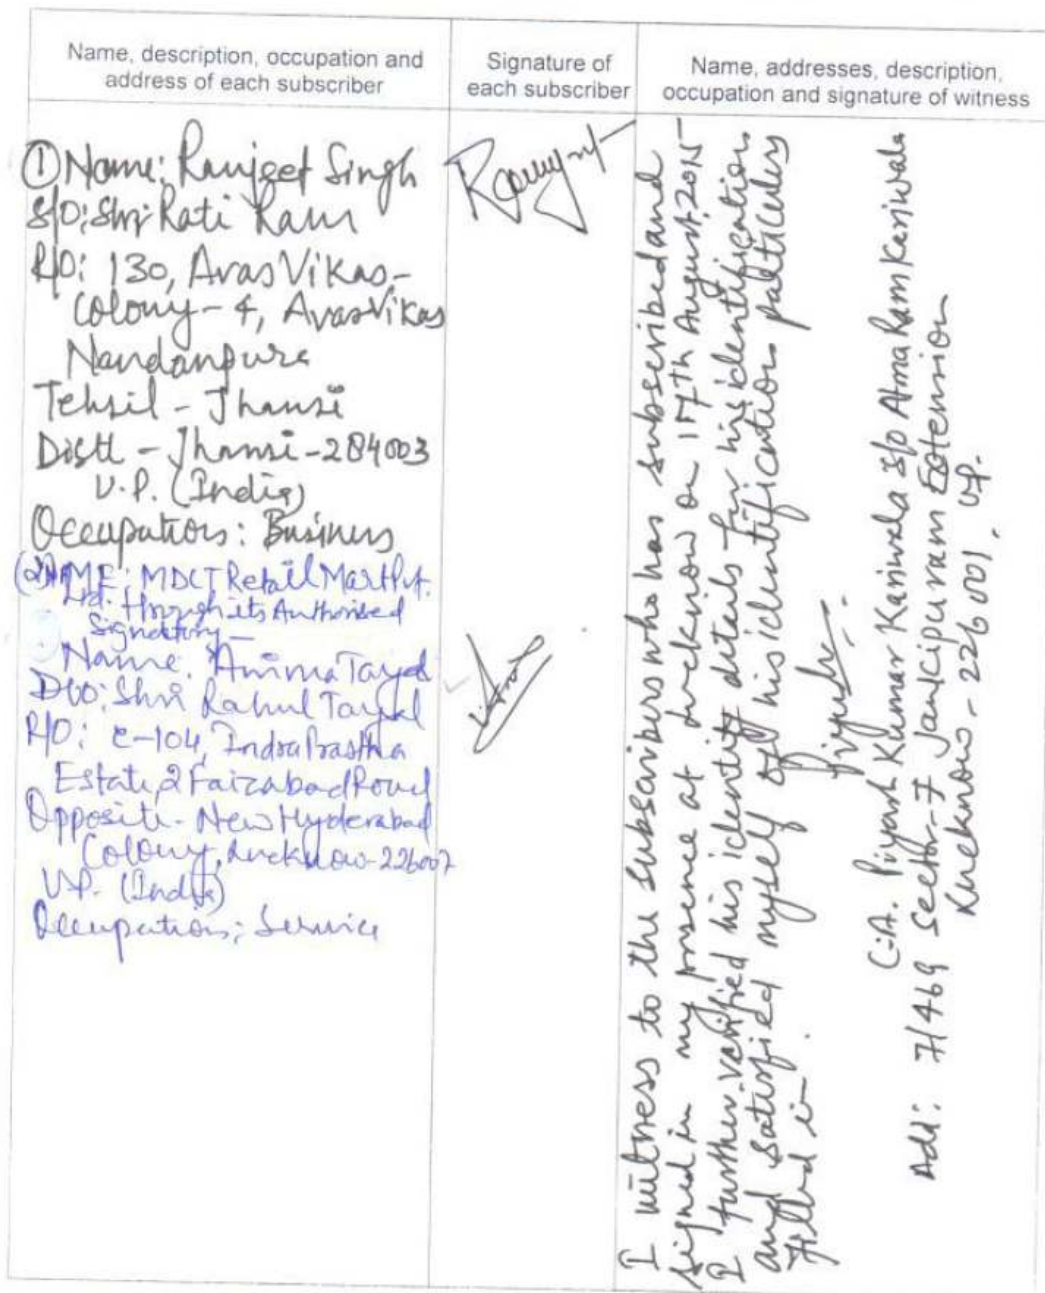 Name, description, occupation and
address of each subscriber
Signature of
each subscriber
Name, addresses, description,
occupation and signature of witness
① Name: Ranjeet Singh
S/O: Shri Rati Ram
R/O: 130, Avas Vikas-
Colony - 4, Avas Vikas
Nandanpura
Tehsil - Jhansi
Distt - Jhansi - 284003
U.P. (India)
Occupation: Business
(2) NAME: MDCT Retail Mart Pvt.
Ltd. through its Authorised
Signatory -
Name: Anima Tayal
D/O: Shri Rahul Tayal
R/O: C-104, Indra Prastha
Estate, 2 Faizabad Road
Opposite - New Hyderabad
Colony, Lucknow - 226007
U.P. (India)
Occupation: Service
I witness to the subscribers who has subscribed and
signed in my presence at Lucknow on 17th August, 2015
I further verified his identity details for his identification
and satisfied myself of his identification particulars
filled in.
Piyush
C.A. Piyush Kumar Kariwala S/o Atma Ram Kariwala
Add: 7/469 Sector-7 Jankipuram Extension
Lucknow - 226001, U.P.